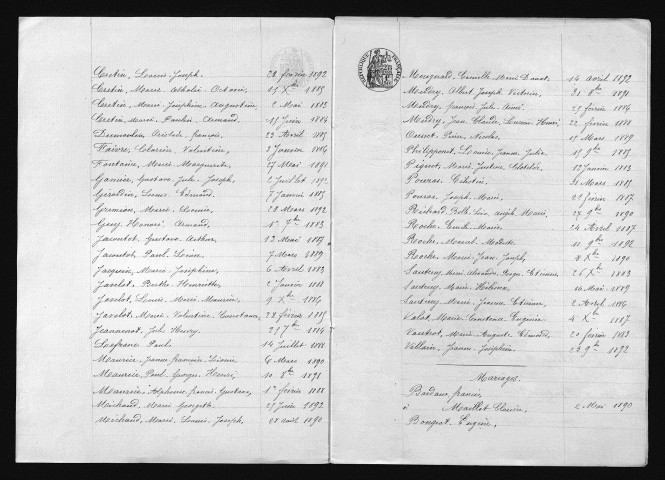 Cretin, Louis Joseph. 28 février 1892
Cretin, Marie Nathalie Octavie, 15 Xbre 1885
Cretin, Marie Joséphine Augustine 2 Mai 1883
Cretin, Marie Paulin Armand. 15 Juin 1884
Demoulin, Aristide françois, 23 Avril 1885
Faivre, Clarisse, Valentine, 3 Janvier 1886
Fontaine, Marie Marguerite, 27 Mai 1891
Garnier, Gustave Jules Joseph, 2 Juillet 1892
Girardin, Louis Edmond. 7 Janvier 1885
Gremion, Marie Louise, 28 Mars 1892
Guy, Honoré Armand. 1er 7bre 1883
Jacoutot, Gustave Arthur, 12 Mai 1885
Jacoutot, Paul Louis, 7 Mars 1889
Jacquin, Marie Joséphine, 6 Avril 1883
Javelot, Berthe Henriette, 2 Janvier 1888
Javelot, Louis Marie Maurice, 9 Xbre 1886
Javelot, Marie Valentine Constance, 28 février 1885
Jeannenot, Jules Henry. 23 7bre 1884
Lesfrane, Paul. 14 Juillet 1888
Maurice, Jeanne françoise Louise 6 Mars 1890
Maurice, Paul Georges Henri, 10 8bre 1891
Maurice, Alphonse francis Gustave, 1er février 1888
Michaud, Marie Georgette, 25 Juin 1892
Michaud, Marie Louis Joseph, 28 août 1890
RÉPUBLIQUE FRANÇAISE
Mougnard, Camille Marie Donat, 14 avril 1892
Moudry, Albert Joseph Victorin, 31 8bre 1891
Moudry, françois Jules Aimé, 25 février 1886
Moudry, Jean Claude Lucien Henri, 22 février 1888
Ouvrot, Pierre Nicolas, 15 Mars 1889
Philipponet, Louise Jeanne Julie, 15 9bre 1885
Pignet, Marie Justine Clotilde, 12 Janvier 1883
Pouras, Célestin, 31 Mars 1885
Pouras, Joseph Marie, 21 février 1887
Richard, Marie, 27 9bre 1890
Roche, Emile Marie, 24 Avril 1887
Roche, Marcel Modeste, 11 9bre 1892
Roche, Marie Jean Joseph, 8 Xbre 1890
Sauteray, Marie Alexandre Roger Etienne, 26 Xbre 1883
Sauteray, Marie Hélène, 16 Mai 1889
Sauteray, Marie Jeanne Etienne, 2 Avril 1886
Valot, Marie Constance Eugénie 4 Xbre 1887
Vautrot, Marie Auguste Edmond, 20 février 1883
Villain, Jeanne Joséphine 23 9bre 1892
Mariages.
Badaux francis,
à Maillot Clarisse, 2 Mai 1890
Bougeot Eugène,